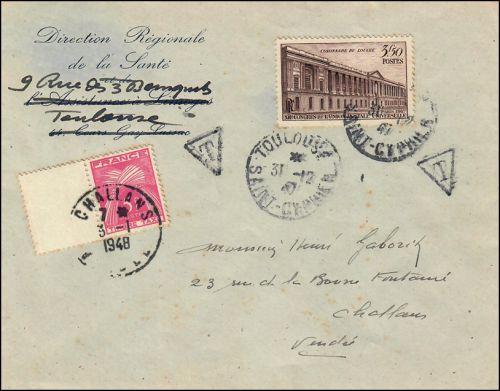 Direction Régionale
de la Santé
9 Rue des 3 Banquets
l'Assistance à
Toulouse
COLONNADE DU LOUVRE
3F50
POSTES
XIIe CONGRÈS DE L'UNION POSTALE UNIVERSELLE
TOULOUSE
31 -12
47
SAINT-CYPRIEN
31 -12
47
SAINT-CYPRIEN
T
T
FRANCE
TIMBRE TAXE
CHALLANS
3 -1
1948
Monsieur Henri Gaborit
23 rue de la Bonne Fontaine
Challans
Vendée